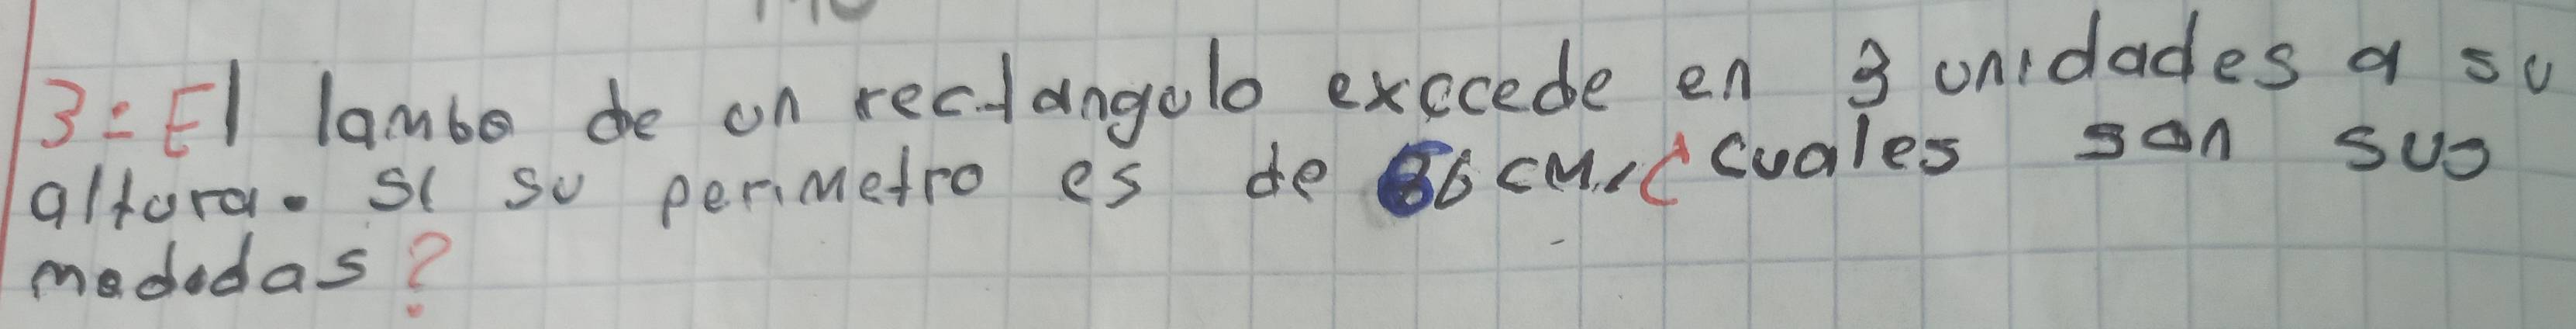 3= El lambo de un rectangulo exccede en 3 unidades a su
altura. si su perimetro es de cm. ¿ cuales son sus
medidas?